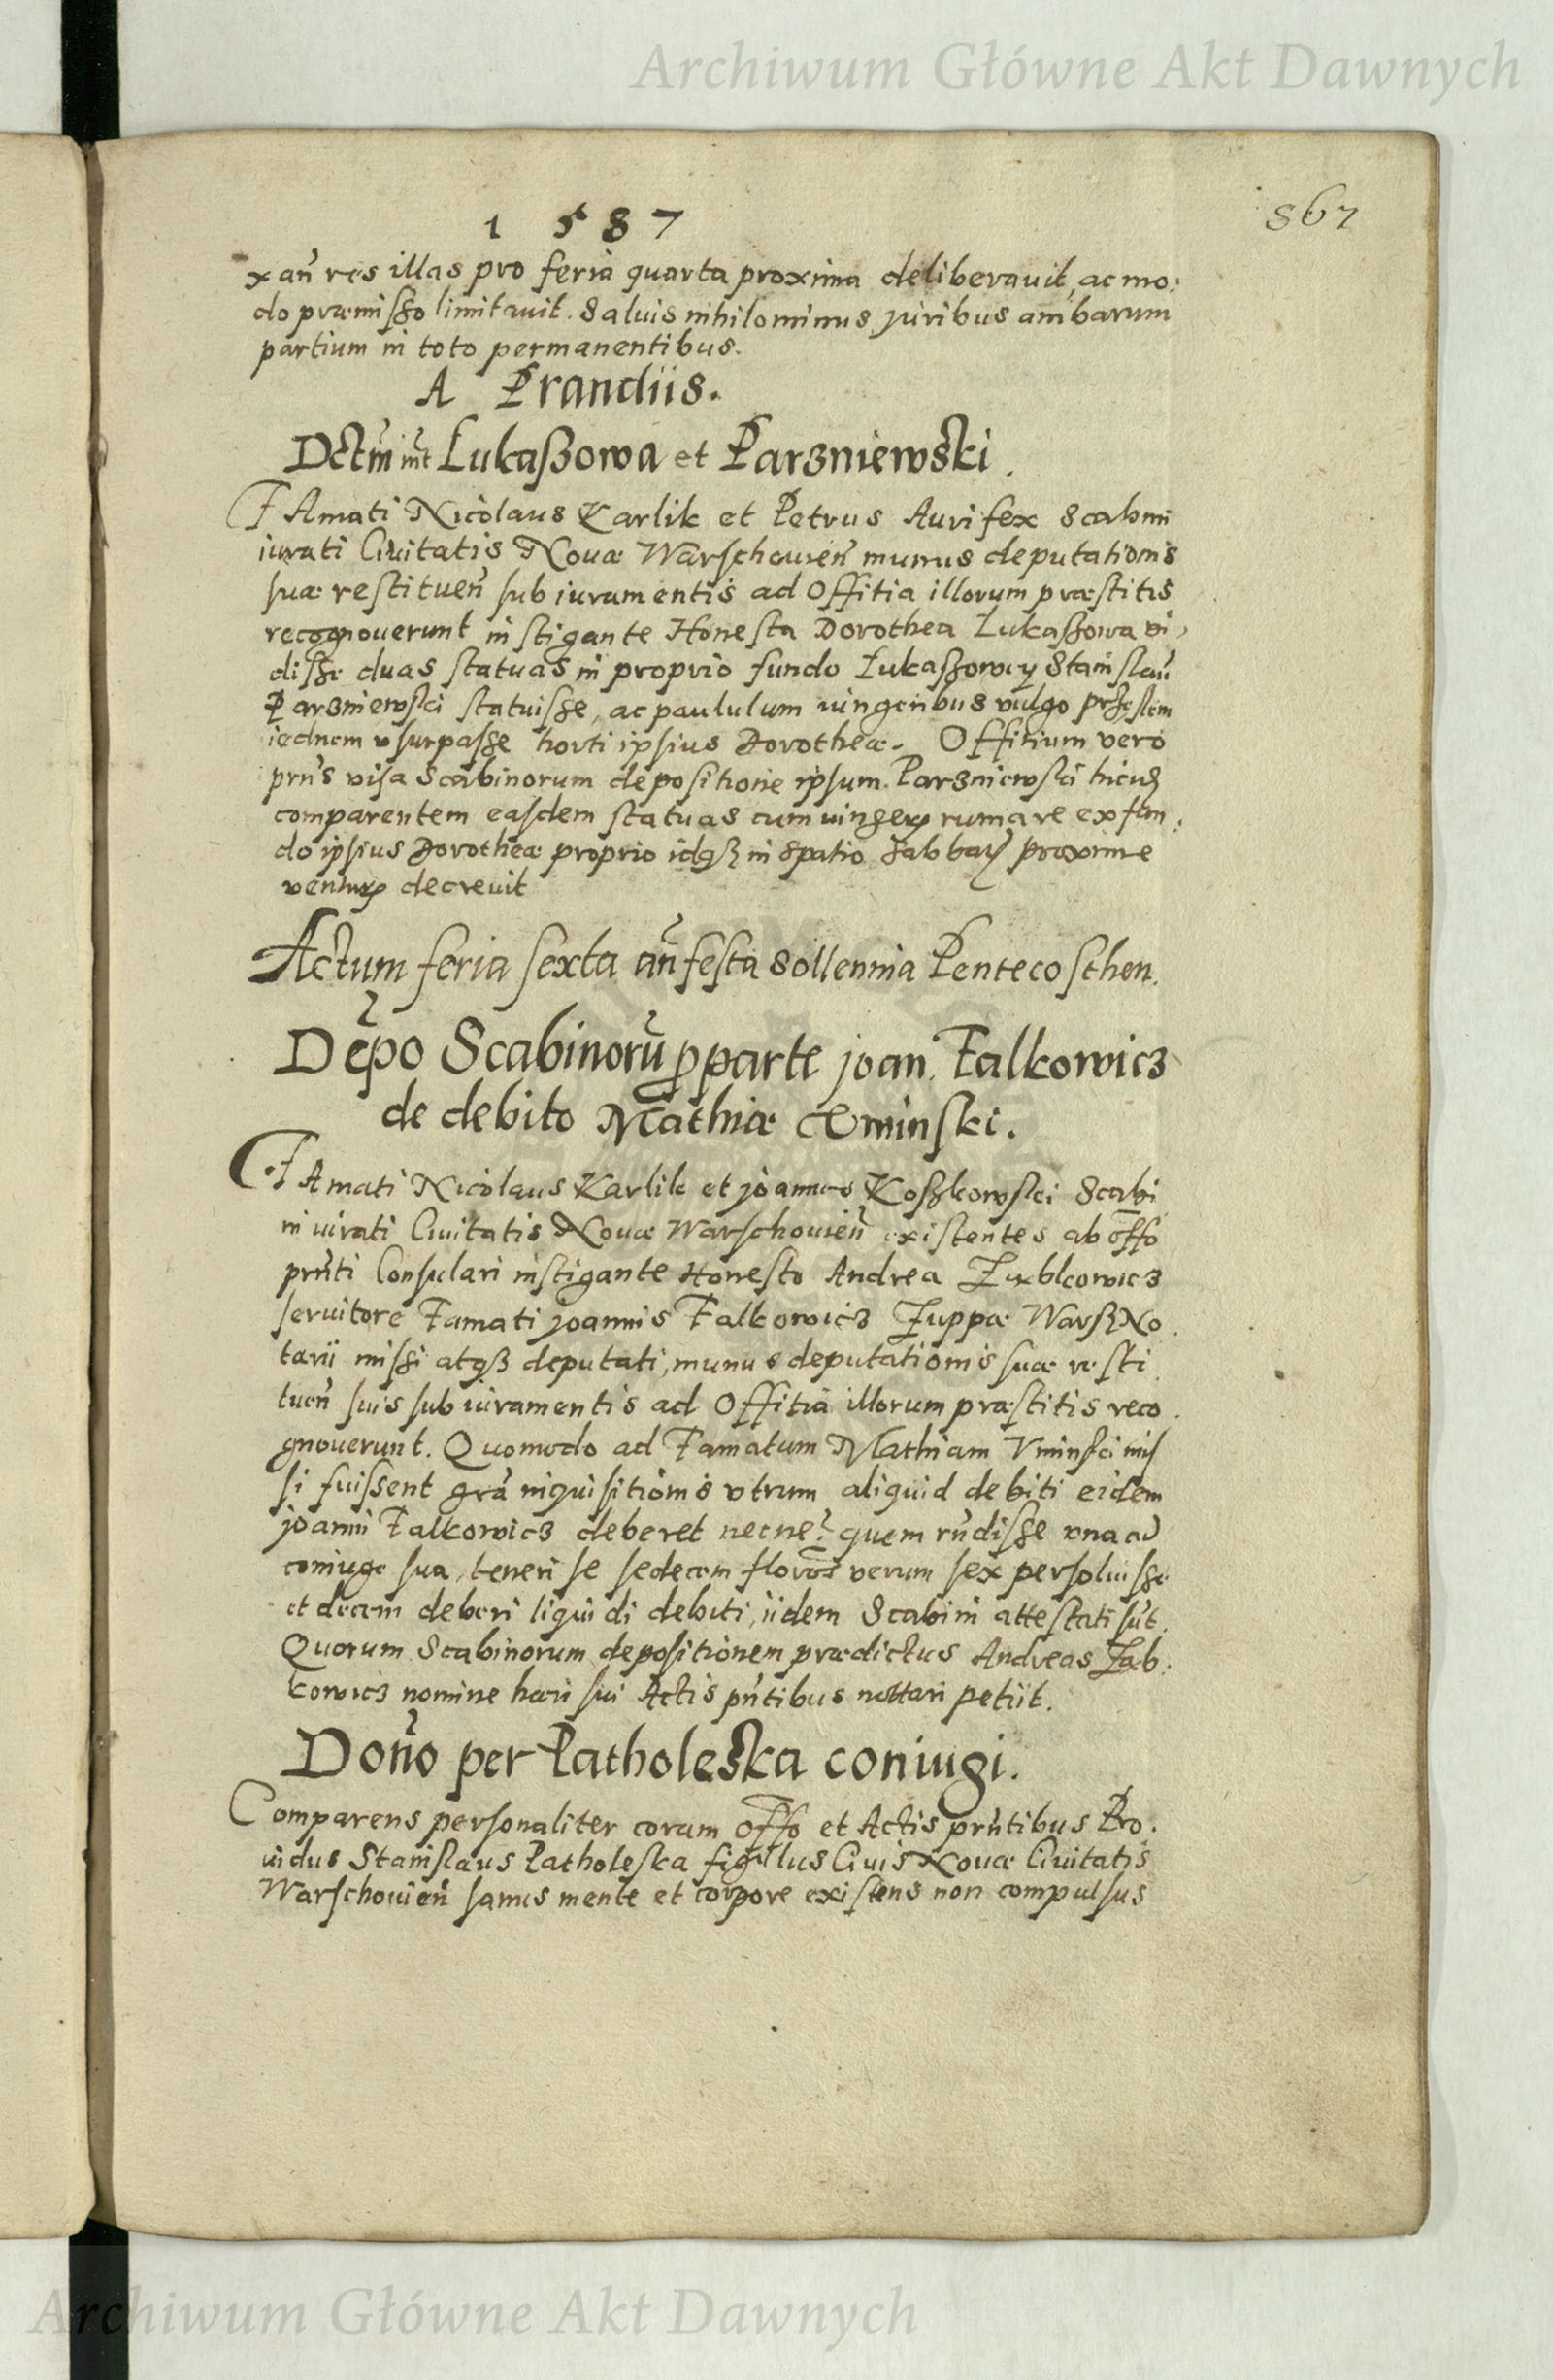 Archiwum Główne Akt Dawnych
1 5 8 7
867
xan̄ res illas pro feria quarta proxima deliberauit, ac mo:
do præmisso limitauit. Saluis nihilominus juribus ambarum
partium in toto permanentibus.
A Prandiis.
Dctm̄ int̄ Lukaszowa et Parzniewski.
FAmati Nicolaus Karlik et Petrus Aurifex Scabini
iurati Ciuitatis Nouæ Warschouien̄ munus deputationis
suæ restituen̄ sub iuramentis ad Offitia illorum præstitis
recognouerunt instigante Honesta Dorothea Lukaszowa vi,
disse duas statuas in proprio fundo Lukaszowey Stanislau̅
Parzniewski statuisse, ac paululum vulgo
iednem vsurpasse horti ipsius Dorotheæ. Offitium vero
prn̄s visa Scabinorum depositione ipsum Parzniewski
comparentem easdem statuas cum rumare ex fun:
do ipsius Dorotheæ proprio idqꝫ in spatio Sabbati proxime
venturi decreuit
Actum feria sexta an̄ festa sollennia Pentecosthen.
Depo̅ Scabinoru̅ ꝑ parte joan. Falkowicz
de debito Mathiæ Vminski.
FAmati Nicolaus Karlik et joannes Koszkowski Scabi
ni iurati Ciuitatis Nouæ Warschouien̄ existentes ab offo̅
prn̄ti Consulari instigante Honesto Andrea
seruitore Famati joannis Falkowicz Zuppæ Warsz No.
tarii missi atqꝫ deputati, munus deputationis suæ resti
tuen̄ suis sub iuramentis ad Offitia illorum præstitis reco.
gnouerunt. Quomodo ad Famatum Mathiam Vminski mis
si fuissent gra̅ inquisitionis vtrum aliquid debiti eidem
joanni Falkowicz deberet necne? quem rn̄disse vna cu̅
coniuge sua, teneri se sedecem floros verum sex persoluisse
et decem deberi liquidi debiti, iidem Scabini attestati su̅t.
Quorum Scabinorum depositionem prædictus Andreas Zab:
kowicz nomine hæri sui Actis pn̄tibus nottari petiit.
Don̄o per Patholeska coniugi.
Comparens personaliter coram offo̅ et Actis prn̄tibus Pro.
uidus Stanislaus Patholeska figulus Ciuis Nouæ Ciuitatis
Warschouien̄ sanus mente et corpore existens non compulsus
Archiwum Główne Akt Dawnych